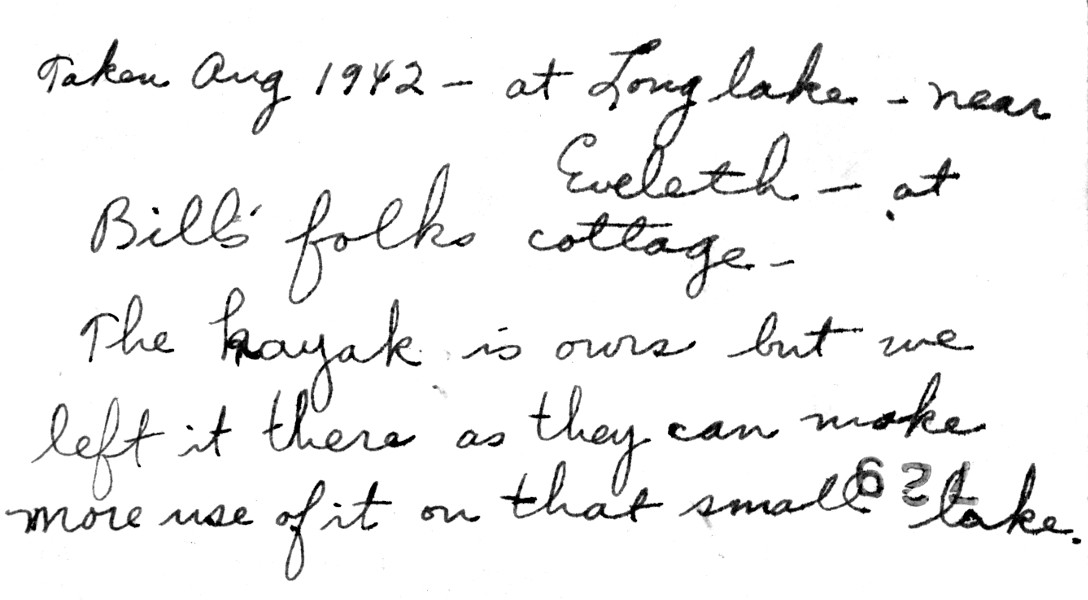 Taken Aug 1942 - at Long lake - near
Eveleth - at
Bill's folks cottage -
The kayak is ours but we
left it there as they can make
more use of it on that small lake.